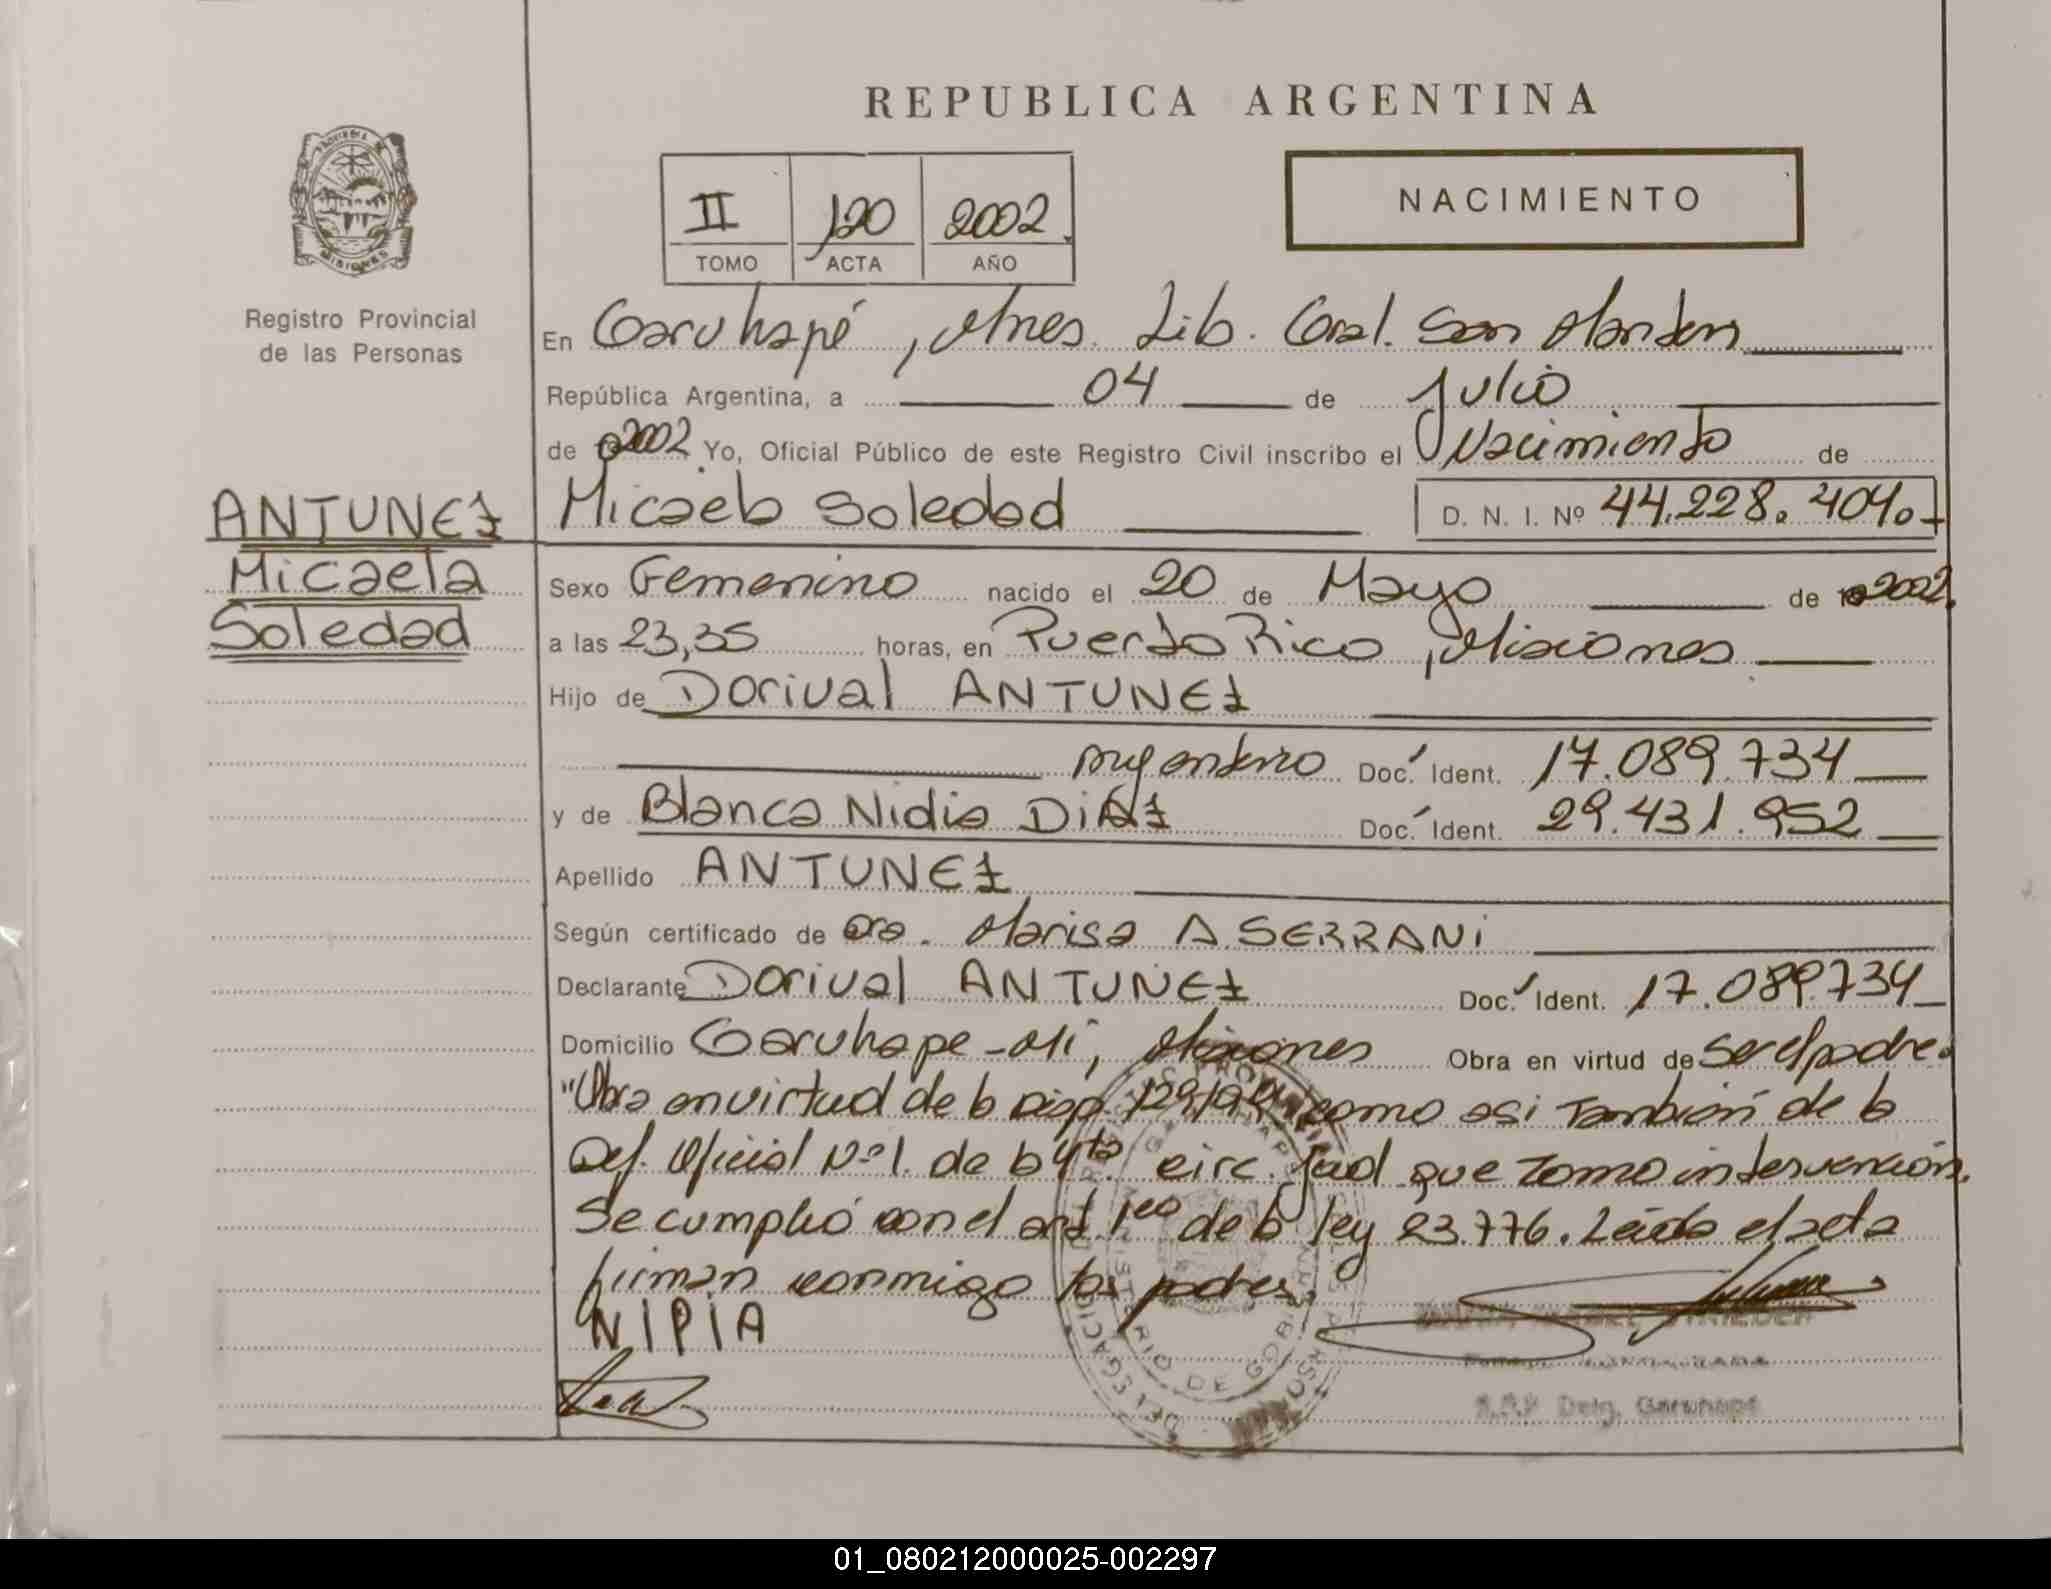 REPUBLICA ARGENTINA
PROVINCIA
MISIONES
Registro Provincial
de las Personas
II 120 2002
TOMO ACTA AÑO
NACIMIENTO
En Garuhapé, Mnes. Lib. Gral. San Martin
República Argentina, a 04 de Julio
de 2002 Yo, Oficial Público de este Registro Civil inscribo el Nacimiento de
ANTUNEZ
Micaela
Soledad
Micaela Soledad D. N. I. Nº 44.228.404.
Sexo Femenino nacido el 20 de Mayo de 2002.
a las 23,35 horas, en Puerto Rico, Misiones
Hijo de Dorival ANTUNEZ
argentino Doc. Ident. 17.089.734
y de Blanca Nidia DiAZ Doc. Ident. 29.431.952
Apellido ANTUNEZ
Según certificado de Dra. Marisa A. SERRANi
Declarante Dorival ANTUNEZ Doc. Ident. 17.089.734
Domicilio Garuhape-Mi, Misiones Obra en virtud de Ser el padre.
"Obra en virtud de la Disp. 129/99, como asi También de la
Def. Oficial Nº 1. de la 4ta circ. Jud que Tomo intervención.
Se cumplió con el art. 1ro de la ley 23.776. Leida el acta
firman conmigo los padres.
NIPiA
DELEGACION
MINISTERIO DE GOBIERNO
Deleg. Garuhape
01_080212000025-002297